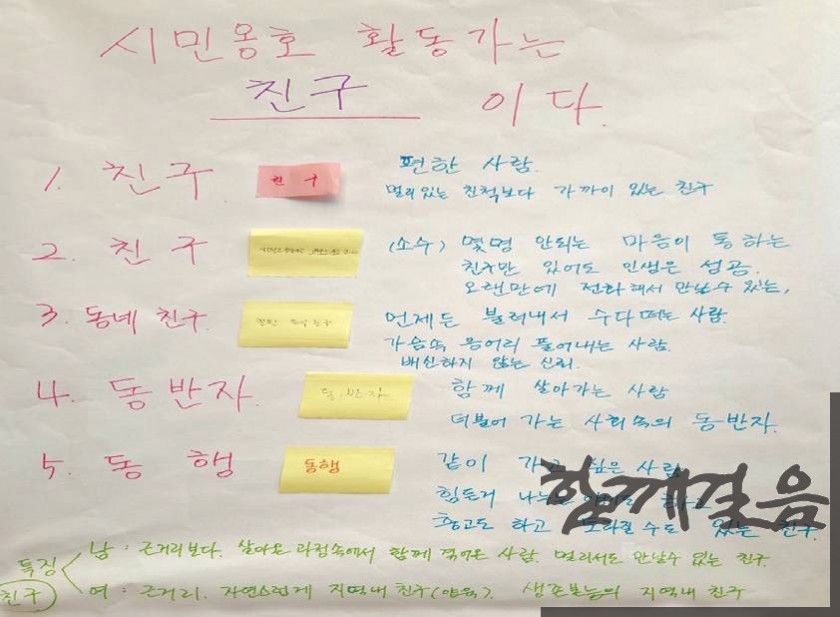 시민옹호 활동가는
친구 이다.
1. 친구 친구 편한 사람.
멀리 있는 친척보다 가까이 있는 친구
2. 친구 (소수) 몇명 안되는 마음이 통하는
친구만 있어도 인생은 성공.
오랜만에 전화해서 만날 수 있는,
3. 동네 친구. 언제든 불러내서 수다 떠는 사람.
가슴속 응어리 풀어내는 사람.
배신하지 않는 신뢰.
4. 동반자. 동반자 함께 살아가는 사람
더불어 가는 사회속의 동반자.
5. 동행 동행 같이 가고 싶은 사람
힘든거
충고도 하고 수도 있는 친구.
함께걸음
특징 남: 근거리보다. 살아온 과정속에서 함께 겪어온 사람. 멀리서도 만날수 있는 친구.
친구 여: 근거리. 자연스럽게 지역내 친구 지역내 친구